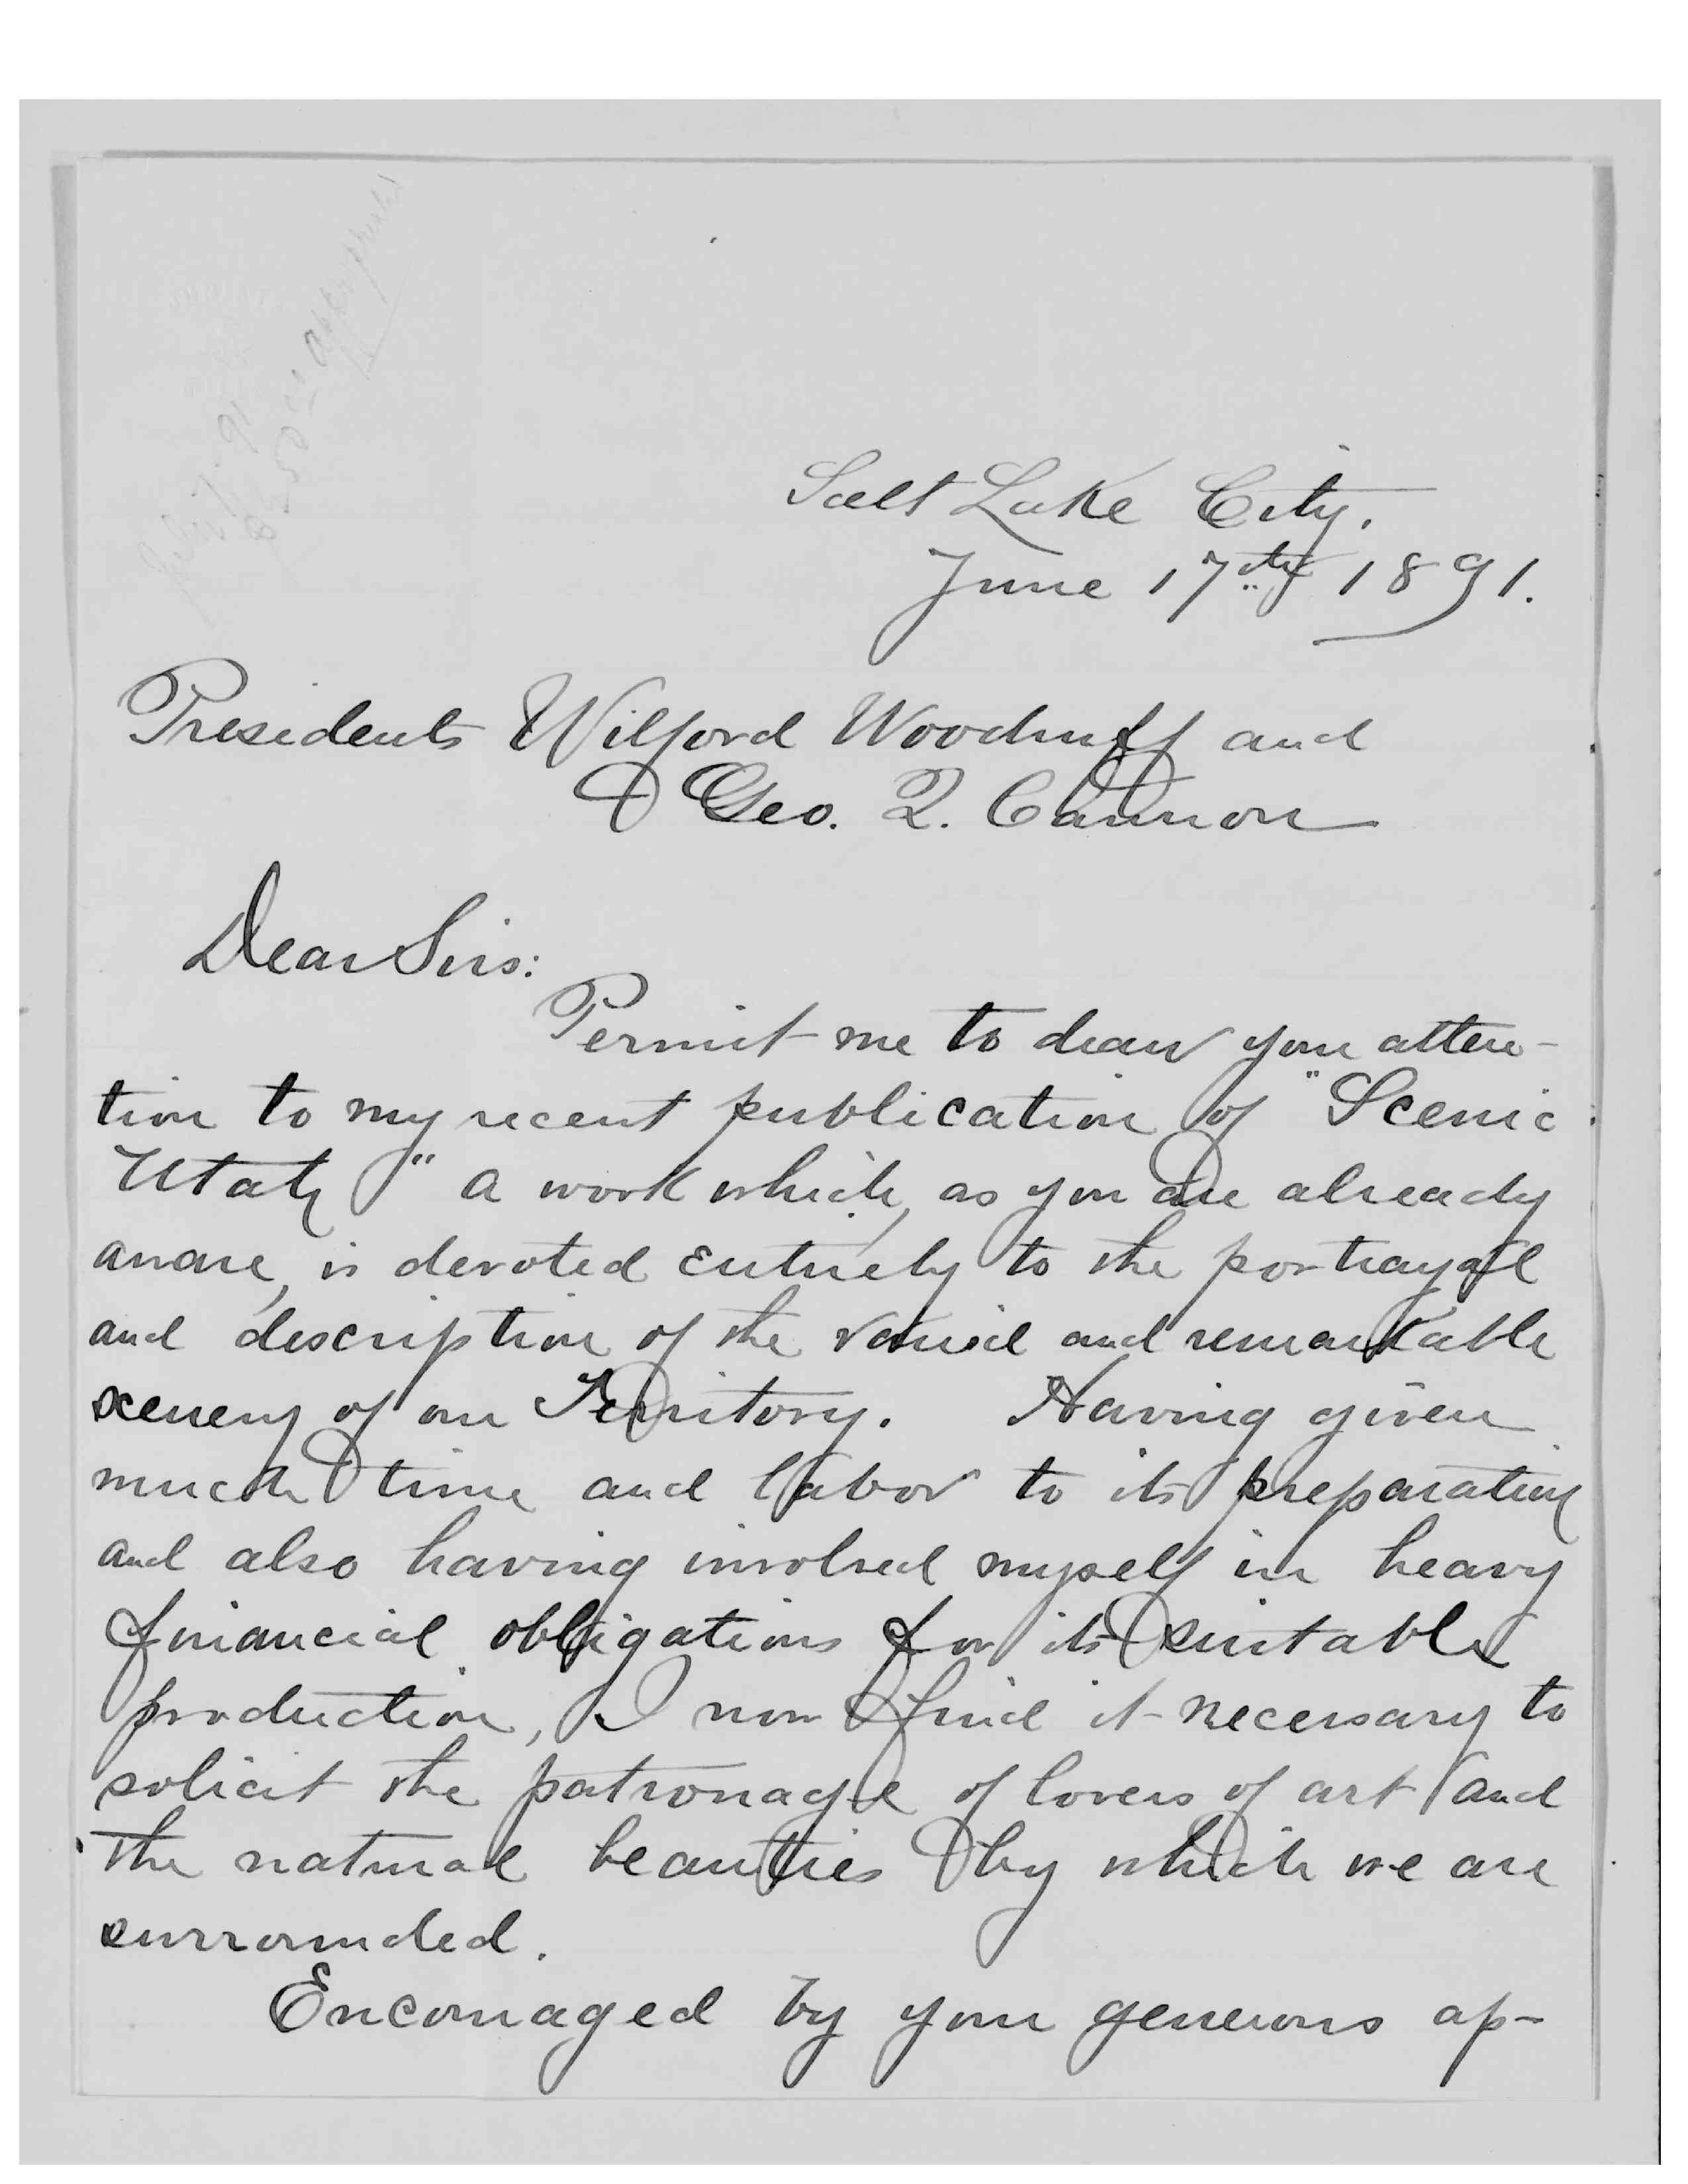 $250.00 appropriated
Salt Lake City.
June 17th 1891.
Presidents Wilford Woodruff and
Geo. Q. Cannon
Dear Sirs:
Permit me to draw your atten-
tion to my recent publication of "Scenic
Utah" a work which, as you are already
aware, is devoted entirely to the portrayal
and description of the varied and remarkable
scenery of our Territory. Having given
much time and labor to its preparation
and also having involved myself in heavy
financial obligations for its suitable
production, I now find it necessary to
solicit the patronage of lovers of art and
the natural beauties by which we are
surrounded.
Encouraged by your generous ap-